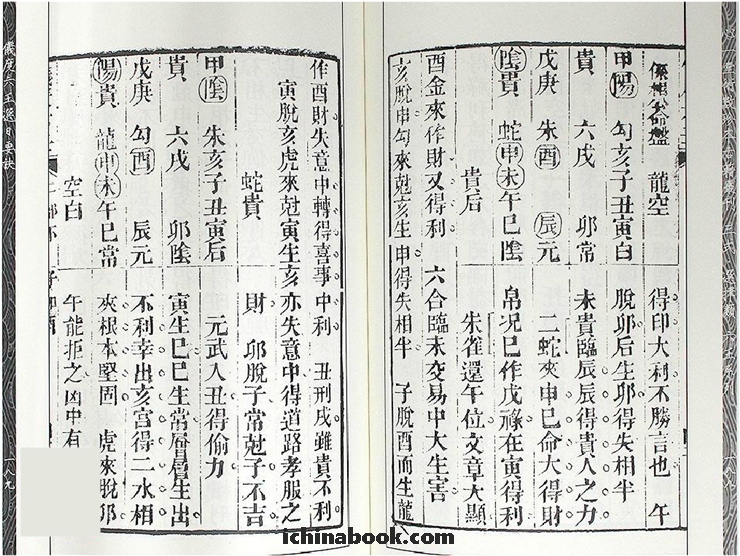 龍空 得印大利不勝言也 午
甲陽 勾亥子丑寅白 脫卯后生卯得失相半
貴 六戌 卯常 未貴臨辰辰得貴人之力
戊庚 朱酉 辰元 二蛇夾申巳命大得財
陰貴 蛇申未午巳陰 帛况巳作戊祿在寅得利
貴后 朱雀還午位文章大顯
酉金來作財又得利 六合臨未交易中大生害
亥脫申勾來尅亥生申得失相半 子脫酉而生龍
作酉財失意中轉得喜事中利 丑刑戌雖貴不利
寅脫亥虎來尅寅生亥亦失意中得道路孝服之
蛇貴 財 卯脫子常尅子不吉
甲陰 朱亥子丑寅后 元武入丑得偷力
貴 六戌 卯陰 寅生巳巳生常層層生出
戊庚 勾酉 辰元 不利幸出亥宮得二水相
陽貴 龍申未午巳常 夾根本堅固 虎來脫卯
空白 午能拒之凶中有
儀度六壬選日要訣 一八九
ichinabook.com